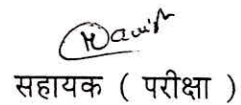 सहायक ( परीक्षा )